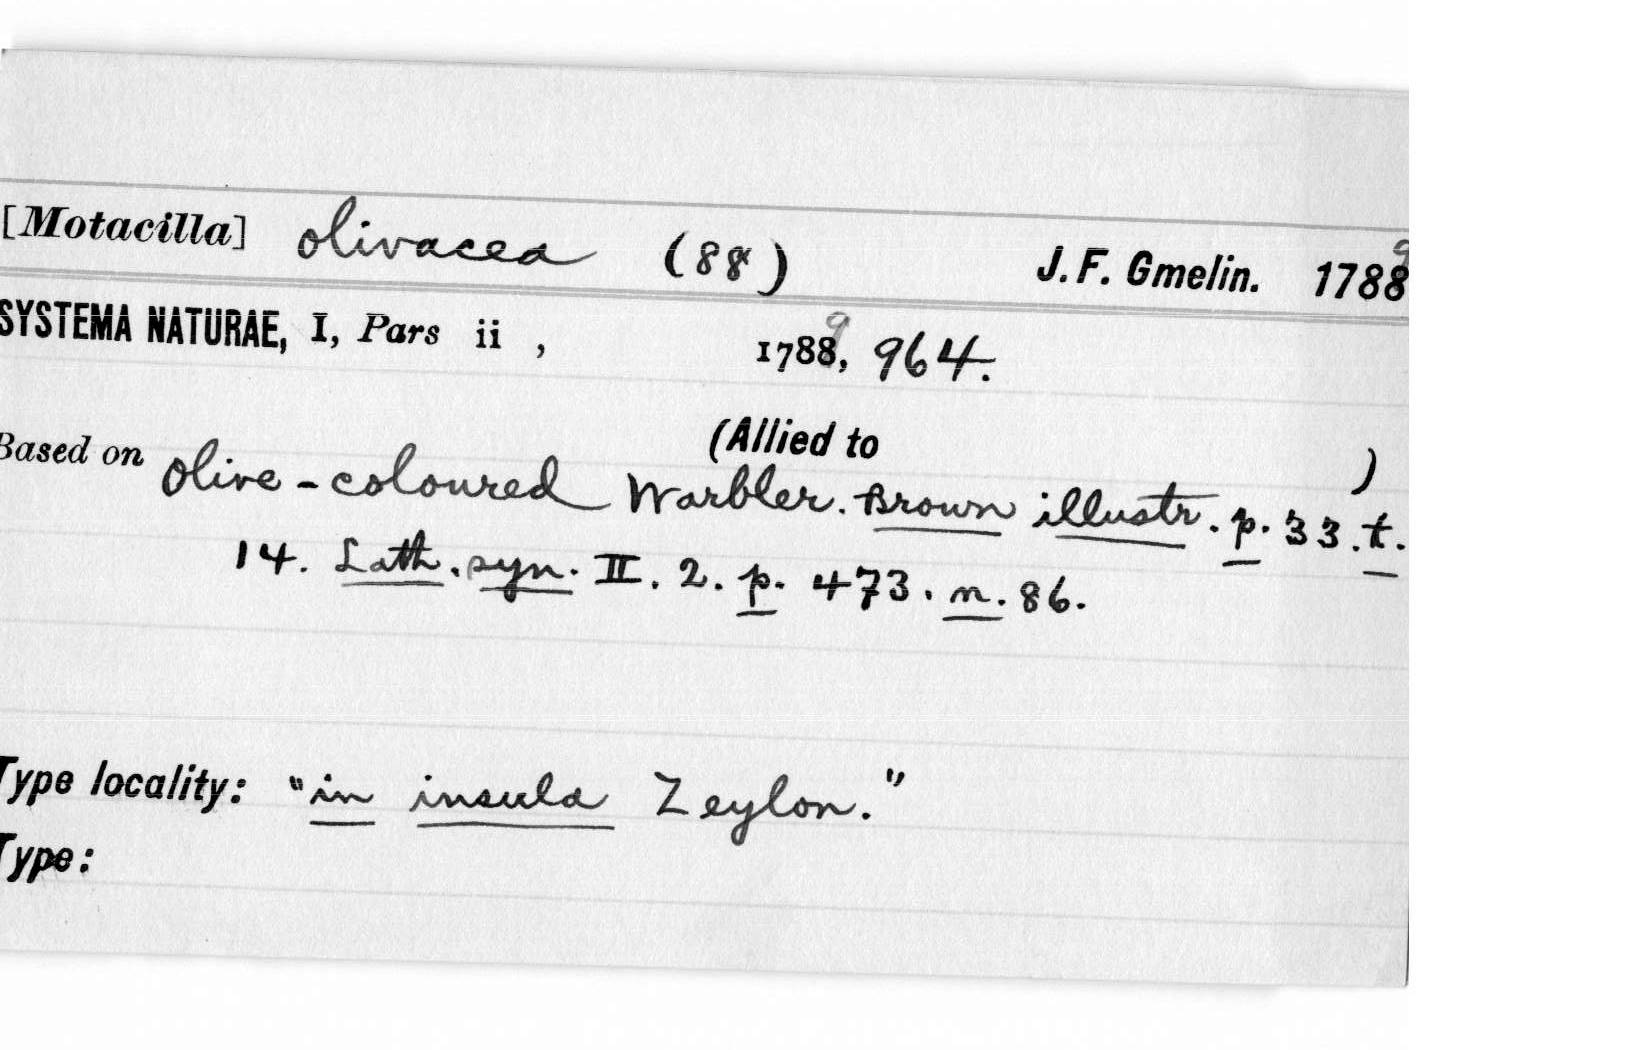 [Motacilla] olivacea (88) J. F. Gmelin. 1788 9
SYSTEMA NATURAE, I, Pars ii , 1788, 9 964.
(Allied to )
Based on Olive-coloured Warbler. Brown illustr. p. 33. t.
14. Lath. syn. II. 2. p. 473. n. 86.
Type locality: "in insula Zeylon."
Type: